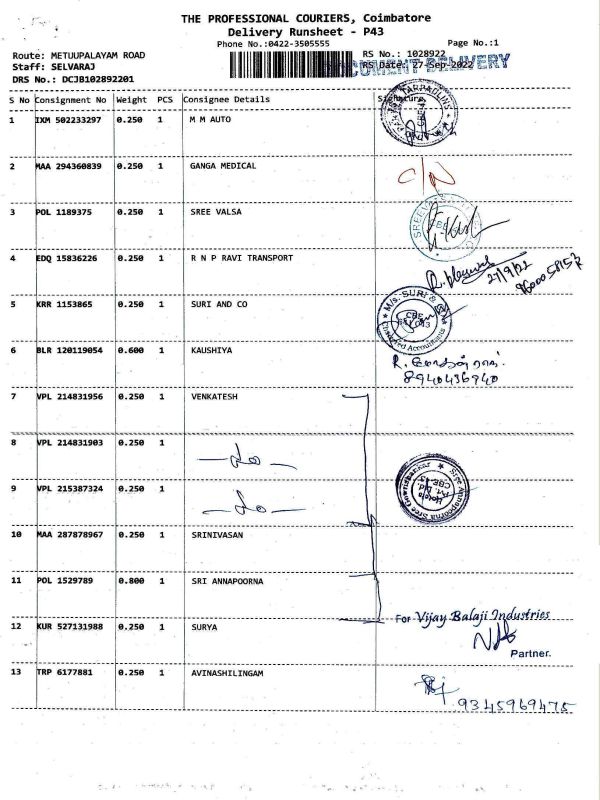 THE PROFESSIONAL COURIERS, Coimbatore
Delivery Runsheet - P43
Phone No.:0422-3505555
Page No.:1
Route: METUUPALAYAM ROAD
RS No.: 1028922
Staff: SELVARAJ
RS Date: 27-Sep-2022
DOCUMENT DELIVERY
DRS No.: DCJB102892201
S No Consignment No Weight PCS Consignee Details Signature
1 IXM 502233297 0.250 1 M M AUTO
TARPAULINS
2 MAA 294360839 0.250 1 GANGA MEDICAL
C/N
3 POL 1189375 0.250 1 SREE VALSA
4 EDQ 15836226 0.250 1 R N P RAVI TRANSPORT
27/9/22
5 KRR 1153865 0.250 1 SURI AND CO
M/s. SURI &
Chartered Accountants
6 BLR 120119054 0.600 1 KAUSHIYA
8940436940
7 VPL 214831956 0.250 1 VENKATESH
8 VPL 214831903 0.250 1
9 VPL 215387324 0.250 1
Sree Annapoorna Sree Gowrishankar
Hotels
Pvt. Ltd.
10 MAA 287878967 0.250 1 SRINIVASAN
11 POL 1529789 0.800 1 SRI ANNAPOORNA
For Vijay Balaji Industries
12 KUR 527131988 0.250 1 SURYA
Partner.
13 TRP 6177881 0.250 1 AVINASHILINGAM
9345969475